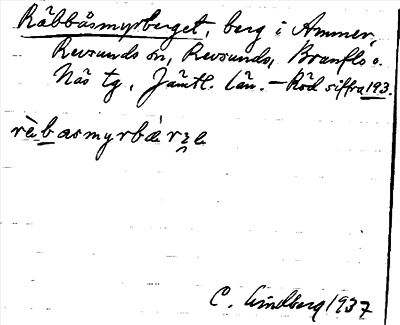 Räbbåsmyrberget, berg i Ammer,
Revsunds sn, Revsunds, Brunflo o.
Näs tg, Jämtl. län. – Röd siffra 193.
rèbasmyrbæ̀rɛ̣e
C. Lindberg 1937